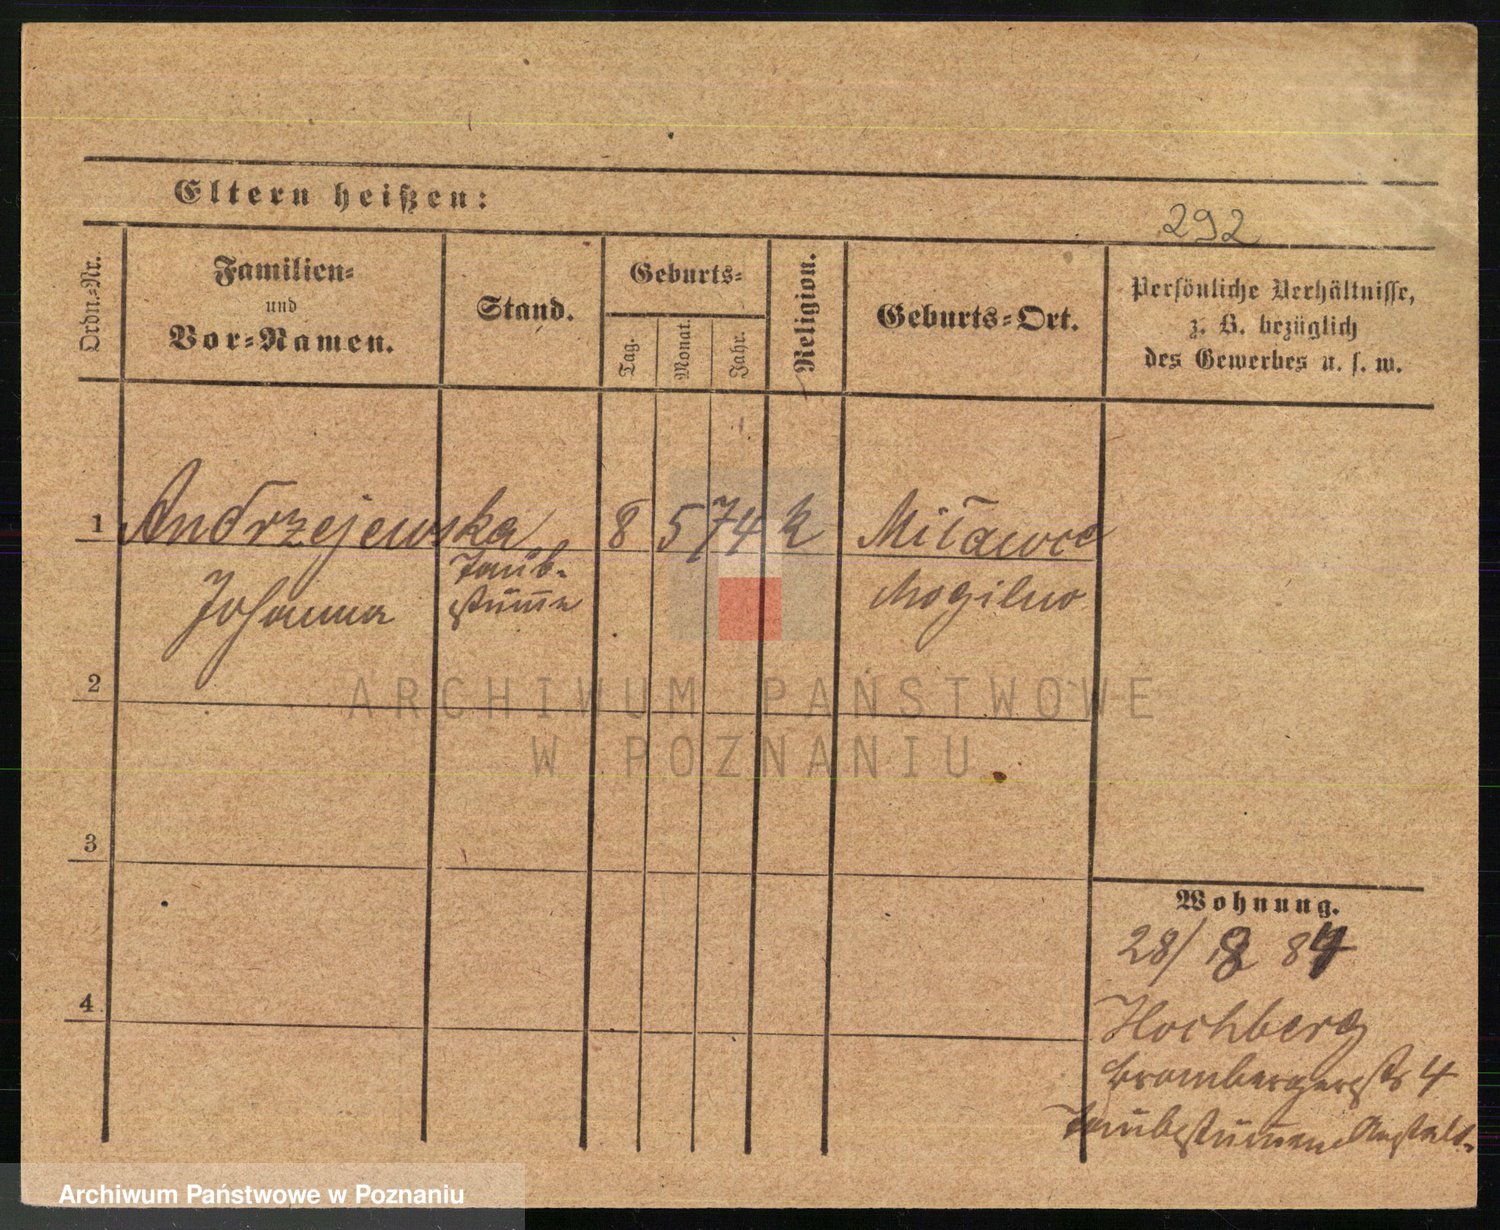 Eltern heißen:
292
Ordn.-Nr.
Familien-
und
Vor-Namen.
Stand.
Geburts-
Tag.
Monat.
Jahr.
Religion.
Geburts-Ort.
Persönliche Verhältnisse,
z. B. bezüglich
des Gewerbes u. s. w.
1 Andrzejewska 8 5 74 k
Johanna
Taub-
stumm
Mogilno
2
ARCHIWUM PAŃSTWOWE
W POZNANIU
3
Wohnung.
28/ 84
4
Hochberg
Brombergerstr 4
Taubstummen Anstalt.
Archiwum Państwowe w Poznaniu